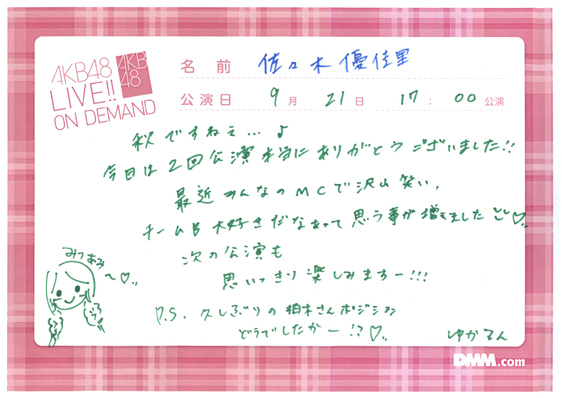 AKB48
LIVE!!
ON DEMAND
AKB
48
名前 佐々木優佳里
公演日 9月 21日 17:00公演
秋ですねぇ…♪
今日は2回公演本当にありがとうございました!!
最近みんなのMCで沢山笑い、
チームB大好きだなぁって思う事が増えました♡
次の公演も
思いっきり楽しみますー!!!
みつあみ
〜♡。
P.S. 久しぶりの柏木さんポジション
どうでしたかー!?♡。
ゆかるん
DMM.com